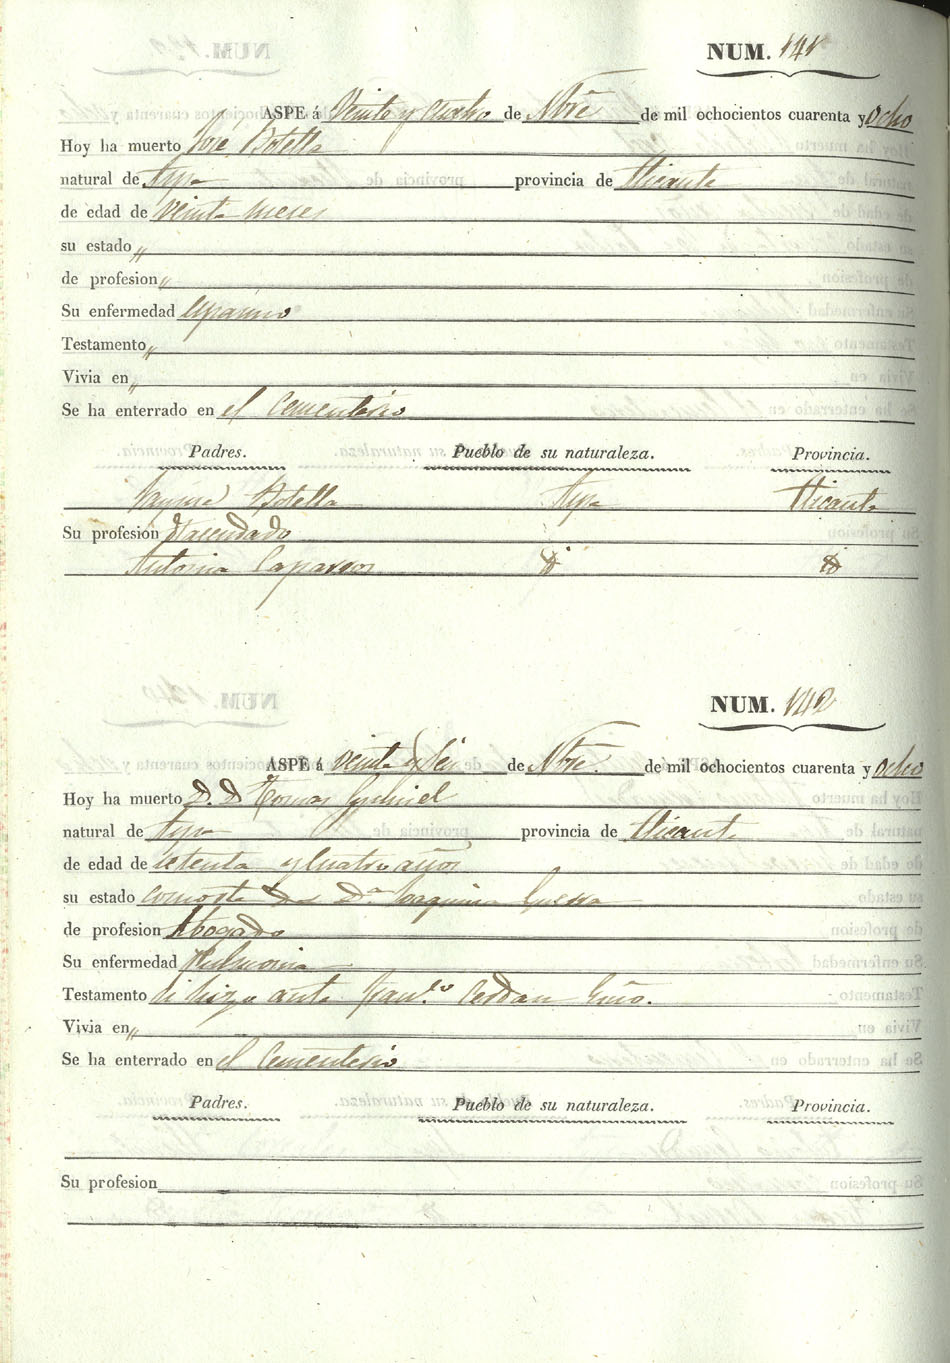 NUM. 141
ASPE á Veinte y cuatro de Nbre de mil ochocientos cuarenta y ocho
Hoy ha muerto José Botella
natural de Aspe provincia de Alicante
de edad de veinte meses
su estado "
de profesion "
Su enfermedad espasmo
Testamento "
Vivia en "
Se ha enterrado en el Cementerio
Padres. Pueblo de su naturaleza. Provincia.
Botella Aspe Alicante
Su profesion Hacendado
Antonia Caparros id id
NUM. 142
ASPE á veinte y seis de Nbre. de mil ochocientos cuarenta y ocho
Hoy ha muerto D. D Tomas Gumiel
natural de Aspe provincia de Alicante
de edad de setenta y cuatro años
su estado consorte de Da. Joaquina
de profesion Abogado
Su enfermedad Pulmonia
Testamento si hizo ante Franco. Cerdan Esno.
Vivia en "
Se ha enterrado en el Cementerio
Padres. Pueblo de su naturaleza. Provincia.
Su profesion